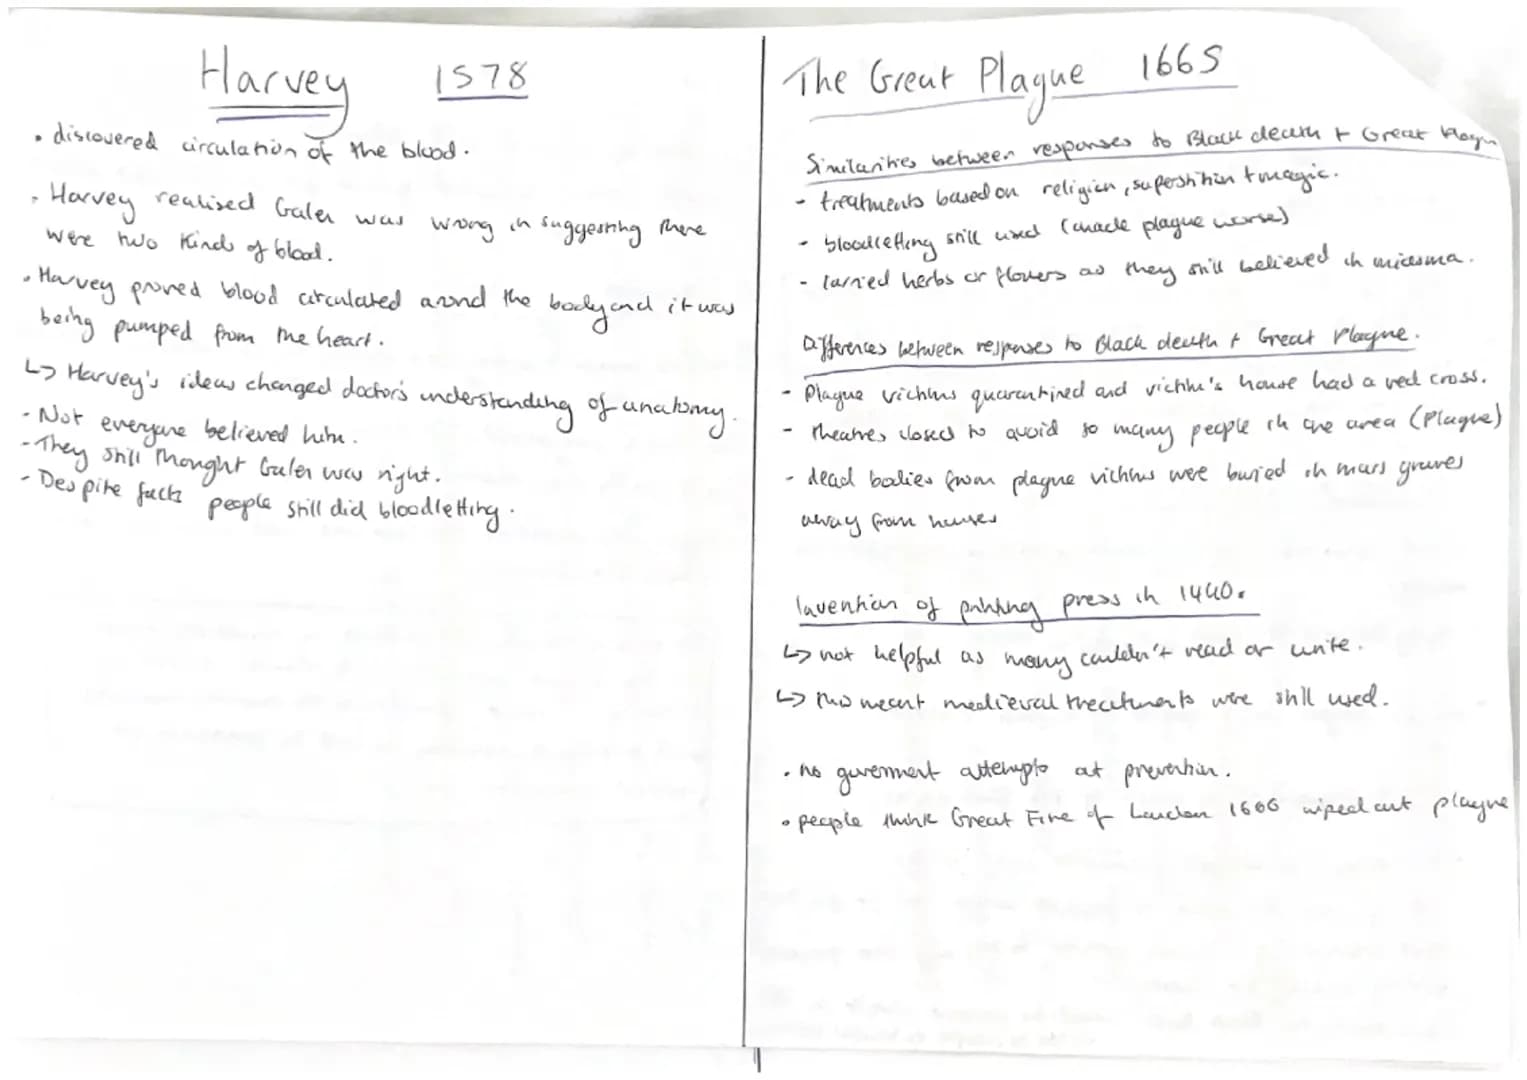 Harvey 1578
• discovered circulation of the blood.
• Harvey realised Galen was wrong in suggesting there
were two kinds of blood.
• Harvey proved blood circulated around the body and it was
being pumped from the heart.
↳ Harvey's ideas changed doctor's understanding of anatomy.
- Not everyone believed him.
- They still thought Galen was right.
- Despite facts people still did bloodletting.
The Great Plague 1665
Similarities between responses to Black death + Great Plague
- treatments based on religion, superstition + magic.
- bloodletting still used (made plague worse)
- carried herbs or flowers as they still believed in miasma.
Differences between responses to Black death + Great Plague.
- Plague victims quarantined and victim's house had a red cross.
- theatres closed to avoid so many people in one area (Plague)
- dead bodies from plague victims were buried in mass graves
away from houses
Invention of printing press in 1440.
↳ not helpful as many couldn't read or write.
↳ this meant medieval treatments were still used.
• no government attempts at prevention.
• people think Great Fire of London 1666 wiped out plague